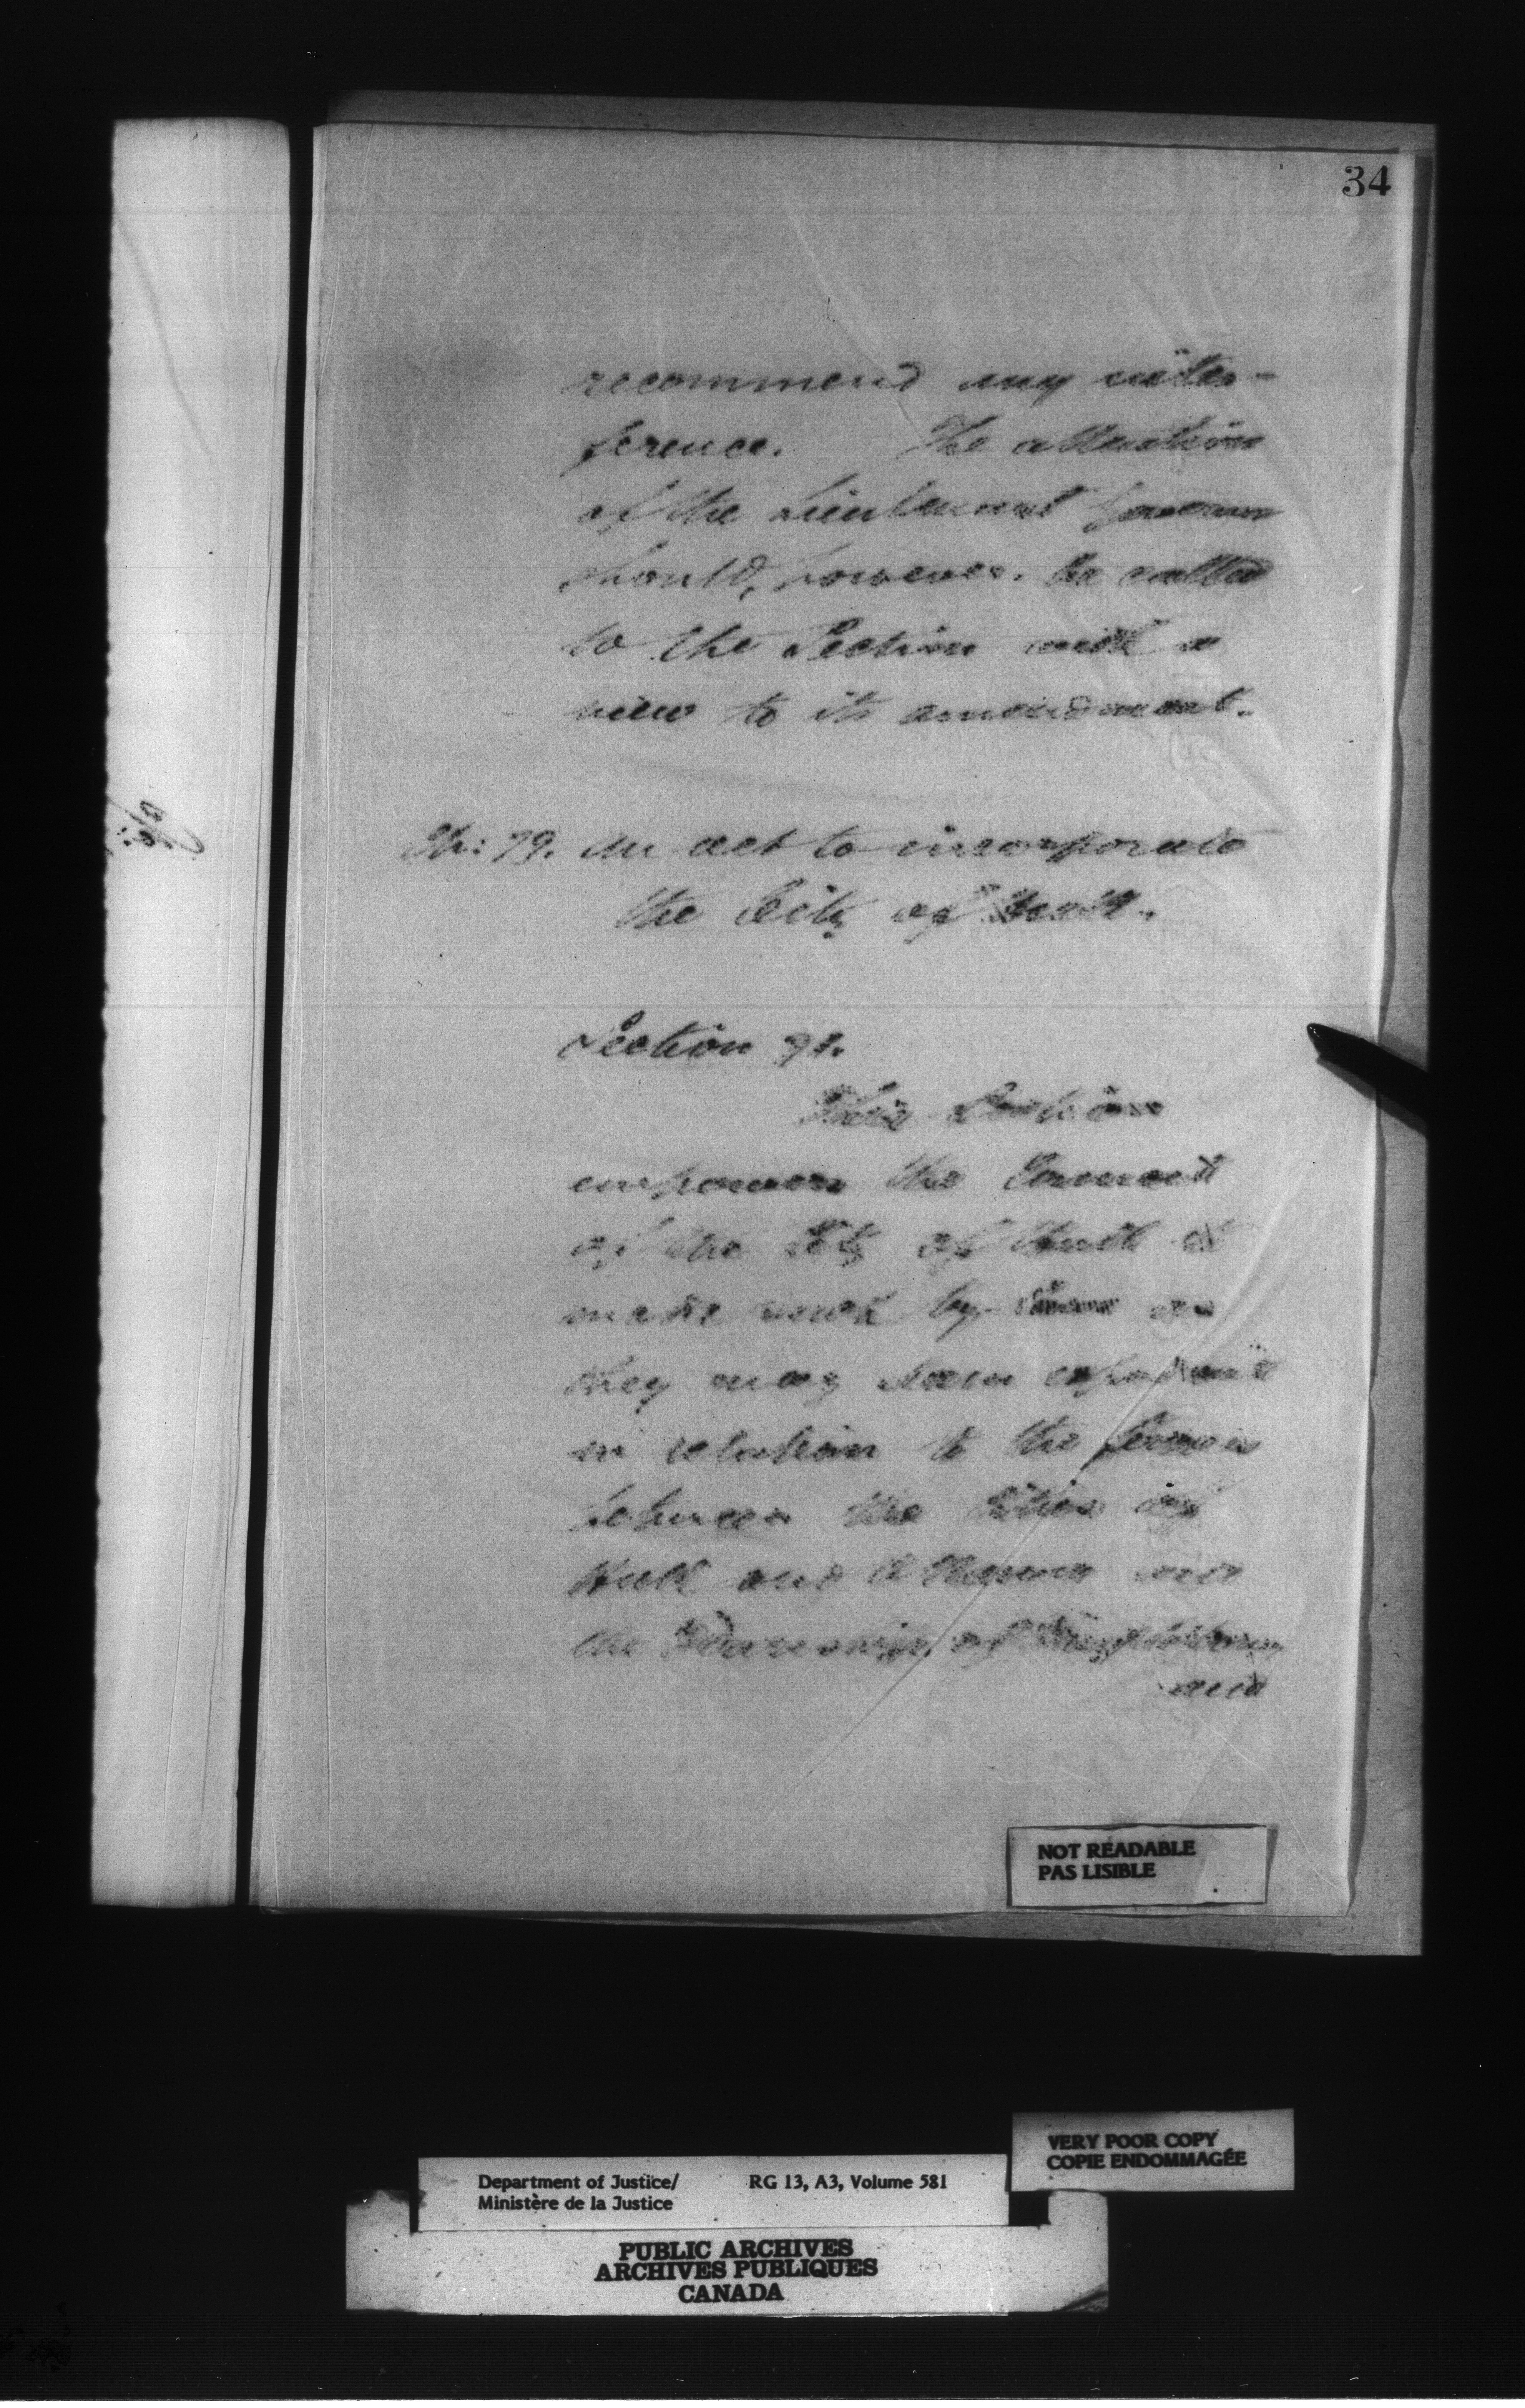 34
recommend any inter-
ference. The attention
of the Lieutenant Governor
should, however, be called
to the Section with a
view to its amendment.
Ch: 79. An act to incorporate
the City of Hull.
Section 91.
This Section
empowers the Council
of the City of Hull to
make such by laws as
they may deem expedient
in relation to the ferries
between the Cities of
Hull and Ottawa and
the Township of Templeton,
and
NOT READABLE
PAS LISIBLE
VERY POOR COPY
COPIE ENDOMMAGÉE
Department of Justice/ RG 13, A3, Volume 581
Ministère de la Justice
PUBLIC ARCHIVES
ARCHIVES PUBLIQUES
CANADA